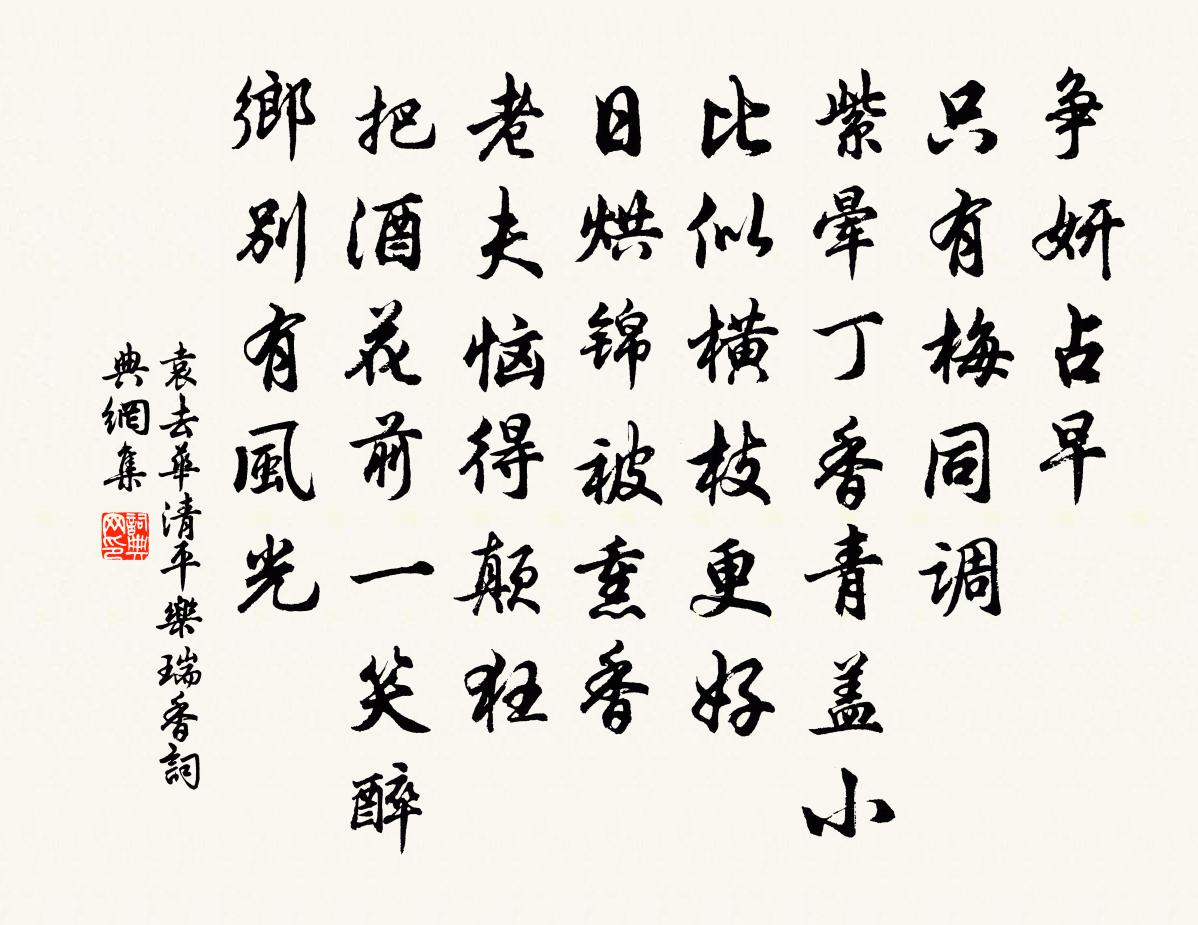 争妍占早
只有梅同调
紫晕丁香青盖小
比似横枝更好
日烘锦被熏香
老夫恼得颠狂
把酒花前一笑醉
鄉别有風光
袁去華清平樂瑞香詞
典網集
詞典网印